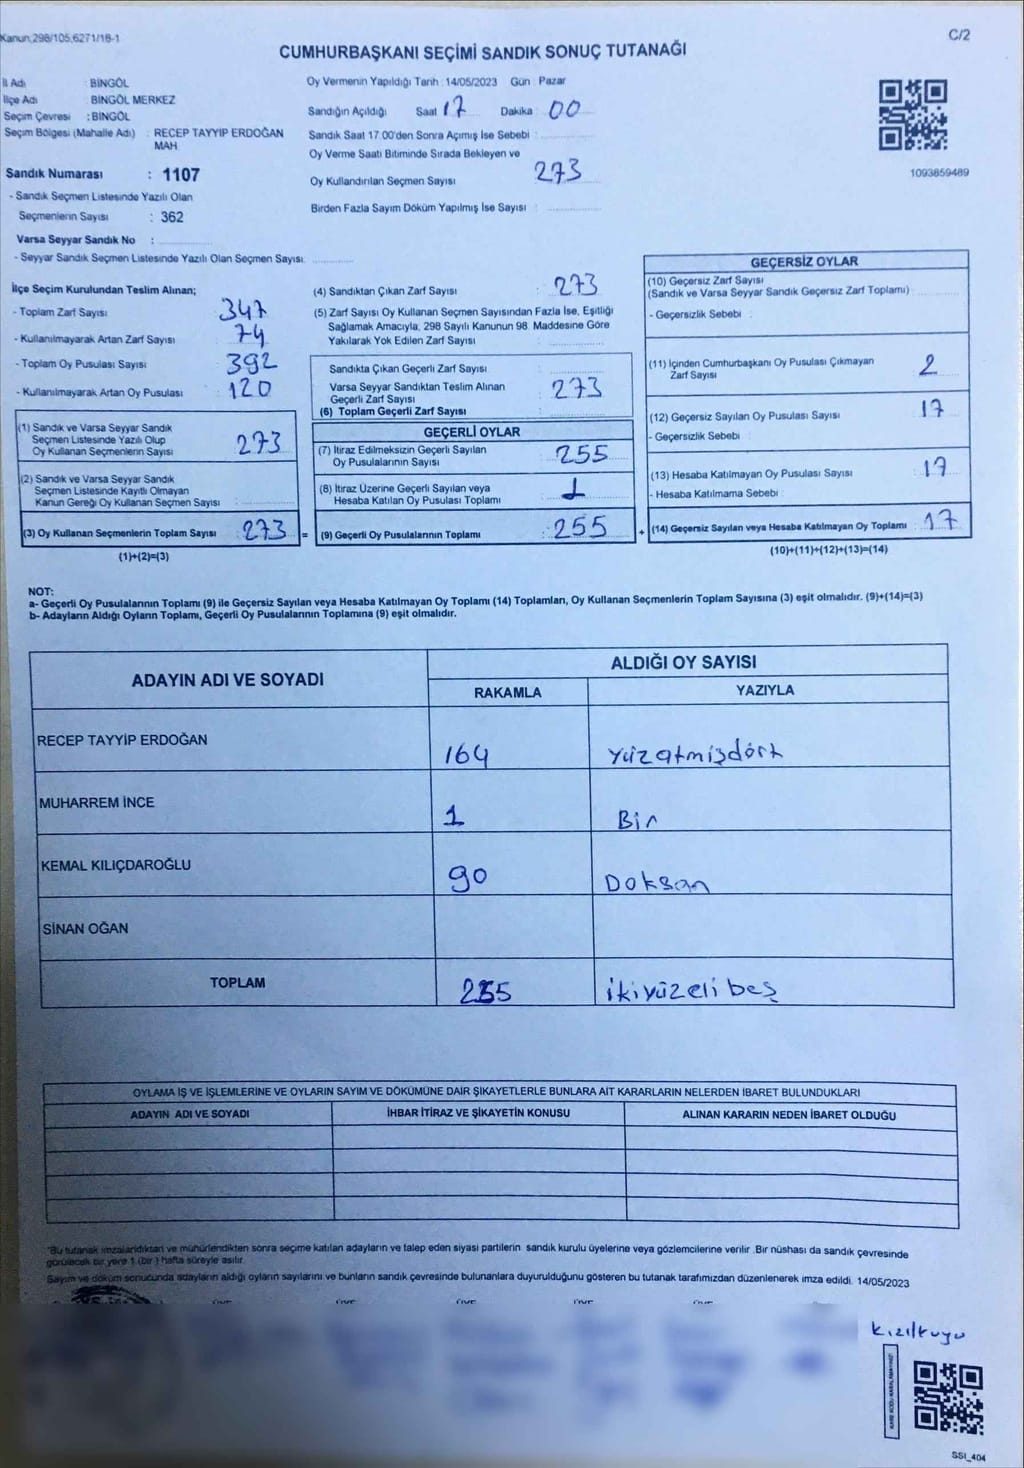 Kanun;298/105,6271/18-1
C/2
CUMHURBAŞKANI SEÇİMİ SANDIK SONUÇ TUTANAĞI
İl Adı : BİNGÖL
İlçe Adı : BİNGÖL MERKEZ
Seçim Çevresi : BİNGÖL
Seçim Bölgesi (Mahalle Adı) : RECEP TAYYIP ERDOĞAN
MAH
Sandık Numarası : 1107
- Sandık Seçmen Listesinde Yazılı Olan
Seçmenlerin Sayısı : 362
Varsa Seyyar Sandık No :
- Seyyar Sandık Seçmen Listesinde Yazılı Olan Seçmen Sayısı:
Oy Vermenin Yapıldığı Tarih : 14/05/2023 Gün : Pazar
Sandığın Açıldığı Saat 17 Dakika 00
Sandık Saat 17.00'den Sonra Açımış İse Sebebi :
Oy Verme Saati Bitiminde Sırada Bekleyen ve
Oy Kullandırılan Seçmen Sayısı : 273
Birden Fazla Sayım Döküm Yapılmış İse Sayısı :
1093859489
İlçe Seçim Kurulundan Teslim Alınan;
- Toplam Zarf Sayısı 347
- Kullanılmayarak Artan Zarf Sayısı 74
- Toplam Oy Pusulası Sayısı 392
- Kullanılmayarak Artan Oy Pusulası : 120
(1) Sandık ve Varsa Seyyar Sandık
Seçmen Listesinde Yazılı Olup
Oy Kullanan Seçmenlerin Sayısı 273
(2) Sandık ve Varsa Seyyar Sandık
Seçmen Listesinde Kayıtlı Olmayan
Kanun Gereği Oy Kullanan Seçmen Sayısı :
(3) Oy Kullanan Seçmenlerin Toplam Sayısı 273 =
(1)+(2)=(3)
(4) Sandıktan Çıkan Zarf Sayısı : 273
(5) Zarf Sayısı Oy Kullanan Seçmen Sayısından Fazla İse, Eşitliği
Sağlamak Amacıyla, 298 Sayılı Kanunun 98. Maddesine Göre
Yakılarak Yok Edilen Zarf Sayısı
Sandıkta Çıkan Geçerli Zarf Sayısı :
Varsa Seyyar Sandıktan Teslim Alınan
Geçerli Zarf Sayısı : 273
(6) Toplam Geçerli Zarf Sayısı
GEÇERLİ OYLAR
(7) İtiraz Edilmeksizin Geçerli Sayılan
Oy Pusulalarının Sayısı 255
(8) İtiraz Üzerine Geçerli Sayılan veya
Hesaba Katılan Oy Pusulası Toplamı
(9) Geçerli Oy Pusulalarının Toplamı : 255 +
GEÇERSİZ OYLAR
(10) Geçersiz Zarf Sayısı
(Sandık ve Varsa Seyyar Sandık Geçersiz Zarf Toplamı) :
- Geçersizlik Sebebi :
(11) İçinden Cumhurbaşkanı Oy Pusulası Çıkmayan
Zarf Sayısı 2
(12) Geçersiz Sayılan Oy Pusulası Sayısı : 17
- Geçersizlik Sebebi :
(13) Hesaba Katılmayan Oy Pusulası Sayısı : 17
- Hesaba Katılmama Sebebi :
(14) Geçersiz Sayılan veya Hesaba Katılmayan Oy Toplamı : 17
(10)+(11)+(12)+(13)=(14)
NOT:
a- Geçerli Oy Pusulalarının Toplamı (9) ile Geçersiz Sayılan veya Hesaba Katılmayan Oy Toplamı (14) Toplamları, Oy Kullanan Seçmenlerin Toplam Sayısına (3) eşit olmalıdır. (9)+(14)=(3)
b- Adayların Aldığı Oyların Toplamı, Geçerli Oy Pusulalarının Toplamına (9) eşit olmalıdır.
ADAYIN ADI VE SOYADI ALDIĞI OY SAYISI
RAKAMLA YAZIYLA
RECEP TAYYİP ERDOĞAN 164 yüzatmişdört
MUHARREM İNCE 1 Bir
KEMAL KILIÇDAROĞLU 90 Doksan
SİNAN OĞAN
TOPLAM 255 ikiyüzelibeş
OYLAMA İŞ VE İŞLEMLERİNE VE OYLARIN SAYIM VE DÖKÜMÜNE DAİR ŞİKAYETLERLE BUNLARA AİT KARARLARIN NELERDEN İBARET BULUNDUKLARI
ADAYIN ADI VE SOYADI İHBAR İTİRAZ VE ŞİKAYETİN KONUSU ALINAN KARARIN NEDEN İBARET OLDUĞU
*Bu tutanak imzalandıktan ve mühürlendikten sonra seçime katılan adayların ve talep eden siyasi partilerin sandık kurulu üyelerine veya gözlemcilerine verilir .Bir nüshası da sandık çevresinde
görülecek bir yere 1 (bir ) hafta süreyle asılır.
Sayım ve döküm sonucunda adayların aldığı oyların sayılarını ve bunların sandık çevresinde bulunanlara duyurulduğunu gösteren bu tutanak tarafımızdan düzenlenerek imza edildi. 14/05/2023
Kızılkuyu
SSI_404